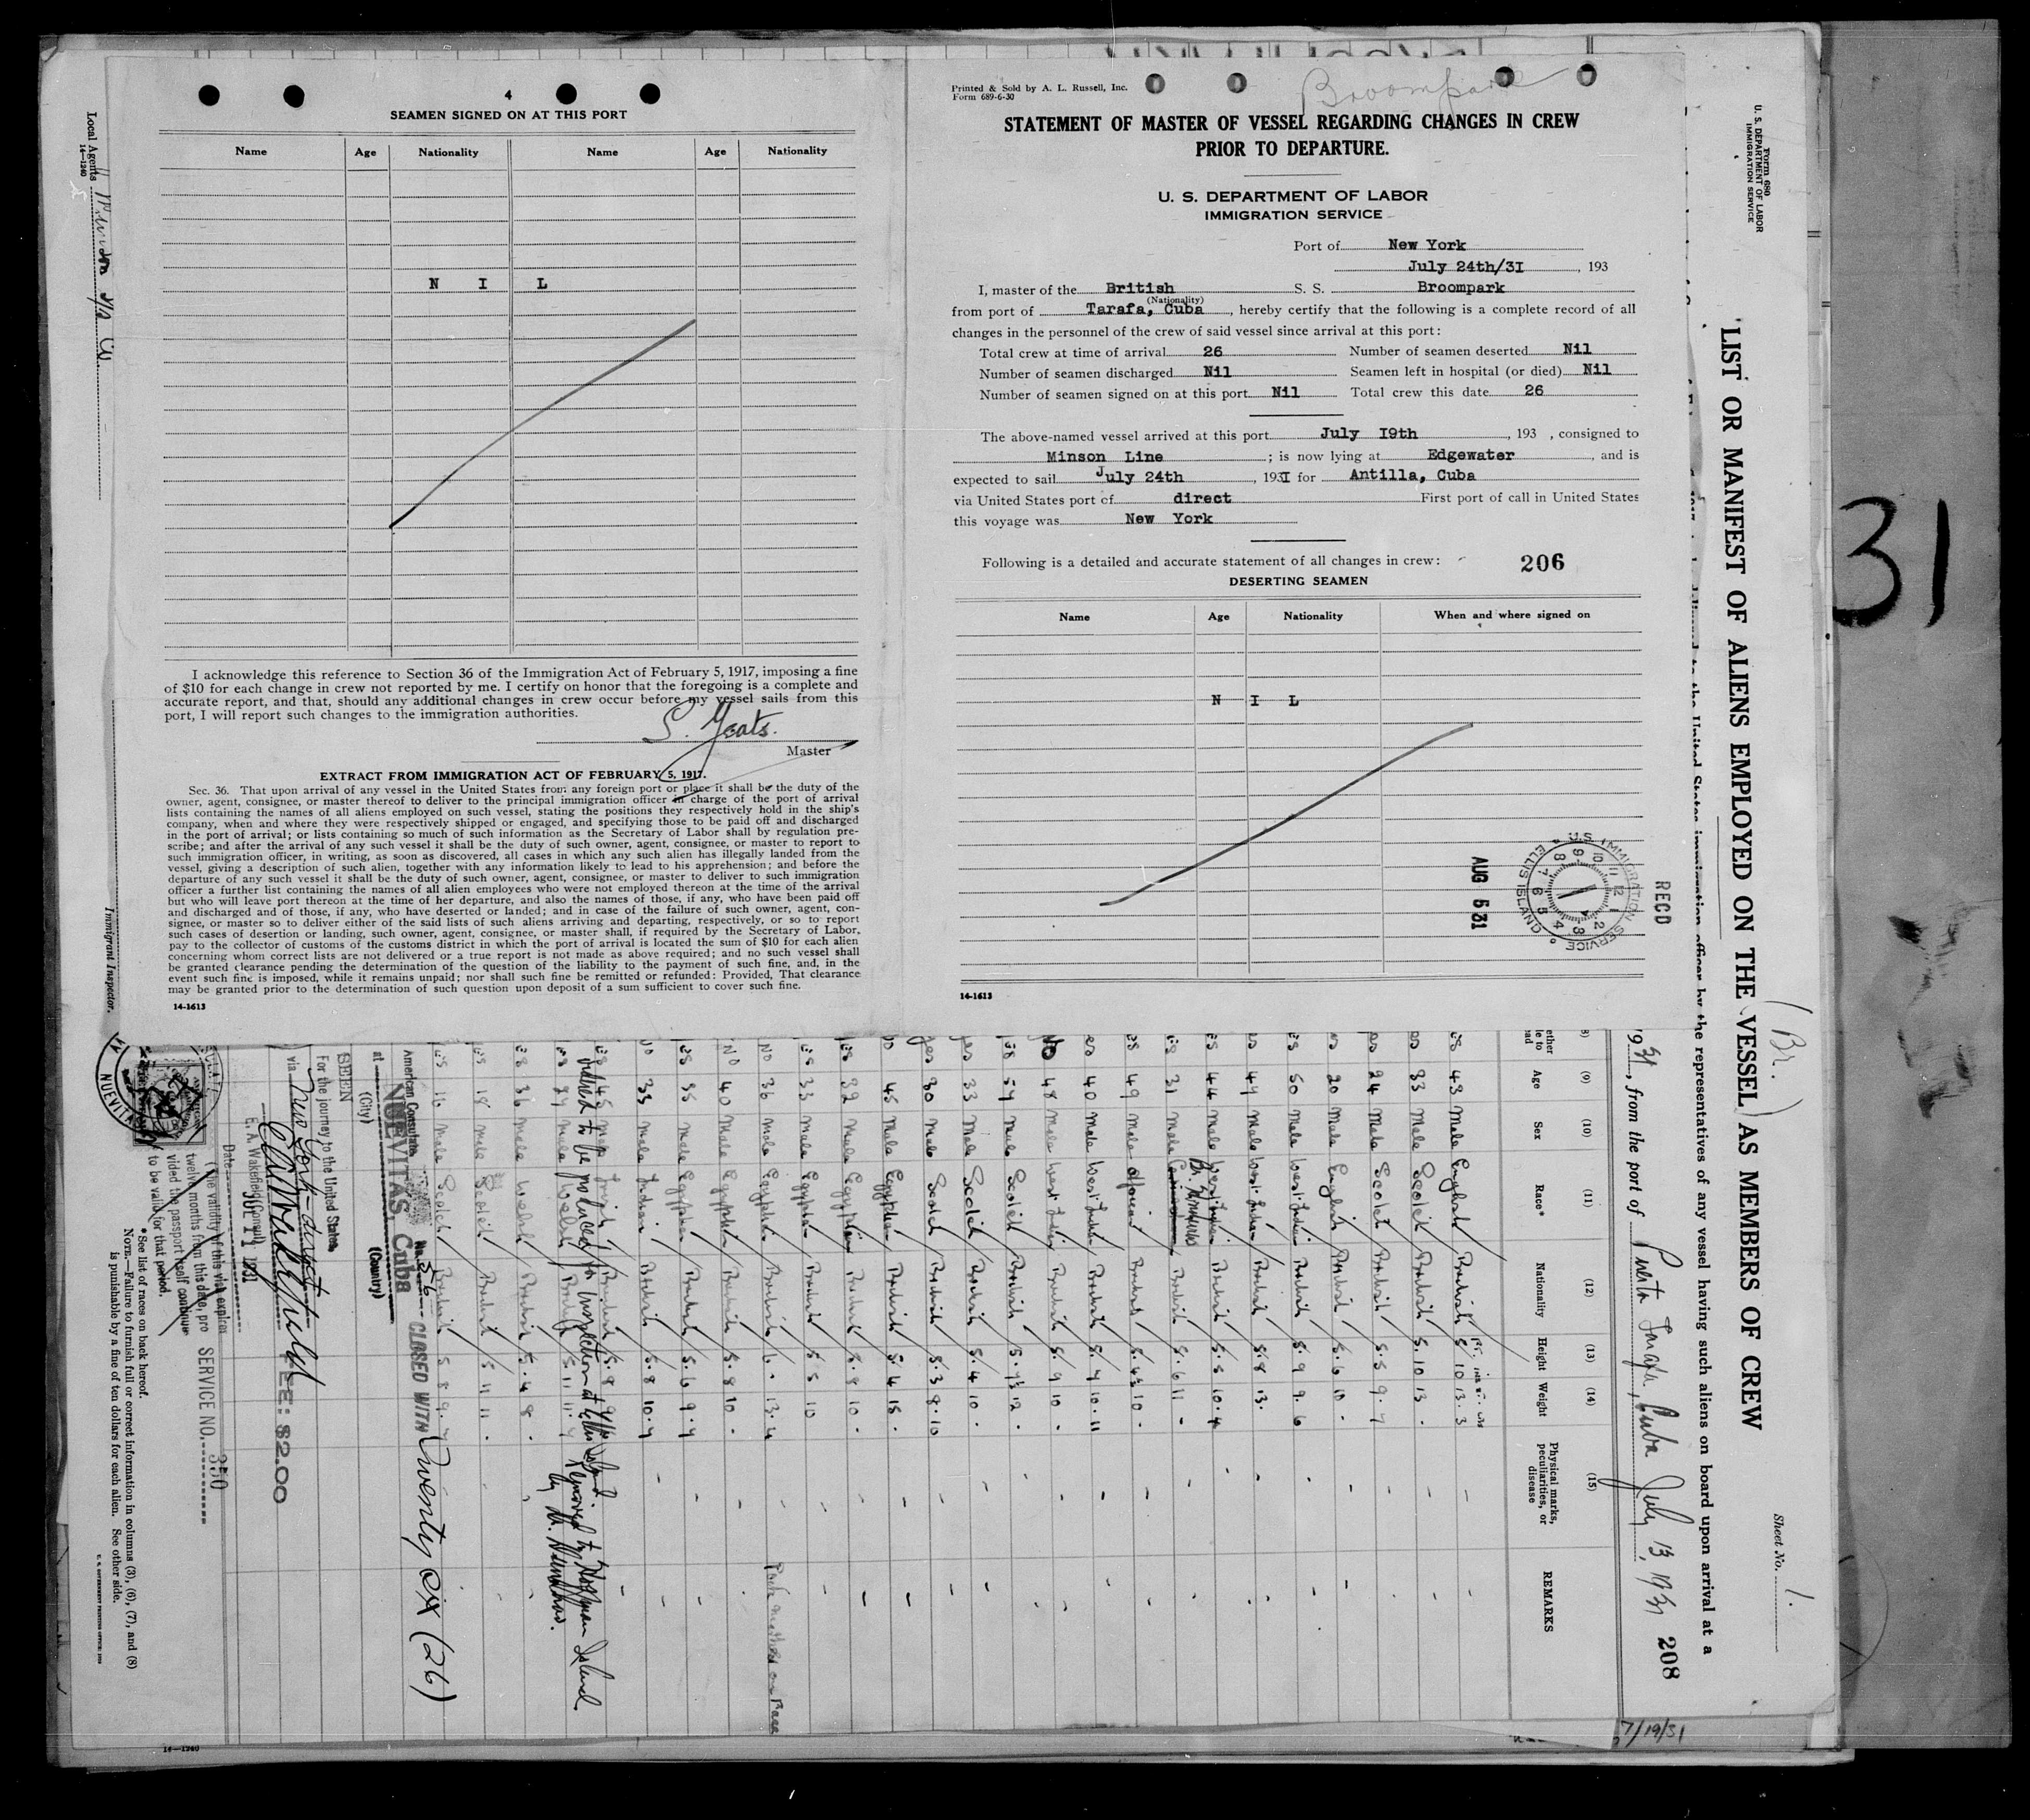 4
SEAMEN SIGNED ON AT THIS PORT
Name Age Nationality Name Age Nationality
N I L
I acknowledge this reference to Section 36 of the Immigration Act of February 5, 1917, imposing a fine
of $10 for each change in crew not reported by me. I certify on honor that the foregoing is a complete and
accurate report, and that, should any additional changes in crew occur before my vessel sails from this
port, I will report such changes to the immigration authorities.
Master
EXTRACT FROM IMMIGRATION ACT OF FEBRUARY 5, 1917.
Sec. 36. That upon arrival of any vessel in the United States from any foreign port or place it shall be the duty of the
owner, agent, consignee, or master thereof to deliver to the principal immigration officer in charge of the port of arrival
lists containing the names of all aliens employed on such vessel, stating the positions they respectively hold in the ship's
company, when and where they were respectively shipped or engaged, and specifying those to be paid off and discharged
in the port of arrival; or lists containing so much of such information as the Secretary of Labor shall by regulation pre-
scribe; and after the arrival of any such vessel it shall be the duty of such owner, agent, consignee, or master to report to
such immigration officer, in writing, as soon as discovered, all cases in which any such alien has illegally landed from the
vessel, giving a description of such alien, together with any information likely to lead to his apprehension; and before the
departure of any such vessel it shall be the duty of such owner, agent, consignee, or master to deliver to such immigration
officer a further list containing the names of all alien employees who were not employed thereon at the time of the arrival
but who will leave port thereon at the time of her departure, and also the names of those, if any, who have been paid off
and discharged and of those, if any, who have deserted or landed; and in case of the failure of such owner, agent, con-
signee, or master so to deliver either of the said lists of such aliens arriving and departing, respectively, or so to report
such cases of desertion or landing, such owner, agent, consignee, or master shall, if required by the Secretary of Labor,
pay to the collector of customs of the customs district in which the port of arrival is located the sum of $10 for each alien
concerning whom correct lists are not delivered or a true report is not made as above required; and no such vessel shall
be granted clearance pending the determination of the question of the liability to the payment of such fine, and, in the
event such fine is imposed, while it remains unpaid; nor shall such fine be remitted or refunded: Provided, That clearance
may be granted prior to the determination of such question upon deposit of a sum sufficient to cover such fine.
14-1613
Printed & Sold by A. L. Russell, Inc.
Form 689-6-30
Broompark
STATEMENT OF MASTER OF VESSEL REGARDING CHANGES IN CREW
PRIOR TO DEPARTURE.
U. S. DEPARTMENT OF LABOR
IMMIGRATION SERVICE
Port of New York
July 24th/3I , 193
I, master of the British S. S. Broompark
(Nationality)
from port of Tarafa, Cuba , hereby certify that the following is a complete record of all
changes in the personnel of the crew of said vessel since arrival at this port:
Total crew at time of arrival 26 Number of seamen deserted Nil
Number of seamen discharged Nil Seamen left in hospital (or died) Nil
Number of seamen signed on at this port Nil Total crew this date 26
The above-named vessel arrived at this port July I9th , 193 , consigned to
Minson Line ; is now lying at Edgewater , and is
expected to sail July 24th , 193I for Antilla, Cuba
via United States port of direct First port of call in United States
this voyage was New York
Following is a detailed and accurate statement of all changes in crew: 206
DESERTING SEAMEN
Name Age Nationality When and where signed on
N I L
RECD
U.S. IMMIGRATION SERVICE
ELLIS ISLAND
AUG 5 31
14-1613
31
Form 680
U. S. DEPARTMENT OF LABOR
IMMIGRATION SERVICE
(Br.)
Sheet No. 1.
LIST OR MANIFEST OF ALIENS EMPLOYED ON THE VESSEL AS MEMBERS OF CREW
the representatives of any vessel having such aliens on board upon arrival at a
1931, from the port of Puerta Tarafa, Cuba July 13, 1931 208
7/19/31
(9) (10) (11) (12) (13) (14) (15)
Age Sex Race* Nationality Height Weight Physical marks, peculiarities, or disease REMARKS
43 Male English British 5 10 13.3
33 Male Scotch British 5.10 13
24 Male Scotch British 5.5 9.7
20 Male English British 5.6 10
50 Male West Indian British 5.9 9.6
47 Male West Indian British 5.8 13.
44 Male West Indian British 5.5 10.4
31 Male British 5.6 11
49 Male African British 5.4½ 10
40 Male West Indian British 5.7 10.11
No 48 Male West Indian British 5.9 10
54 Male Scotch British 5.7½ 12
33 Male Scotch British 5.4 10
30 Male Scotch British 5.3 8.10
45 Male Egyptian British 5.4 15
32 Male Egyptian British 5.8 10
33 Male Egyptian British 5 5 10
No 36 Male Egyptian British 6 . 13.4 Pock marked on Face
No 40 Male Egyptian British 5.8 10
35 Male Egyptian British 5.6 9.4
33 Male Indian British 5.8 10.7
Ordered to be produced for inspection at Ellis Island. Removed to Hoffman Island
36 Male Welsh British 5.4 8
18 Male Scotch British 5 11 11
16 Male Scotch British 5 8 9.7
American Consulate No. 56 CLOSED WITH Twenty six (26)
at NUEVITAS, Cuba
(City) (Country)
SEEN
For the journey to the United States
via New York direct
E. A. Wakefield, Consul
FEE: $2.00
Date JUL 11 1931
SERVICE NO. 350
(The validity of this visa expires
twelve months from this date, pro
vided the passport itself continue
to be valid for that period.
NUEVITAS
* See list of races on back hereof.
NOTE.—Failure to furnish full or correct information in columns (3), (6), (7), and (8)
is punishable by a fine of ten dollars for each alien. See other side.
14—1240
Local Agents
14—1240
Immigrant Inspector.